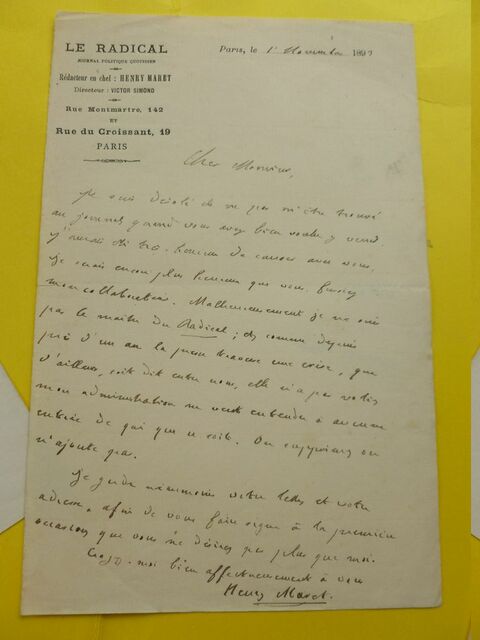 LE RADICAL
JOURNAL POLITIQUE QUOTIDIEN
Rédacteur en chef : HENRY MARET
Directeur : VICTOR SIMOND
Rue Montmartre, 142
ET
Rue du Croissant, 19
PARIS
Paris, le 1er Novembre 189
Cher Monsieur,
Je suis désolé de ne pas m'être trouvé
au journal quand vous avez bien voulu y venir.
J'aurais été très heureux de causer avec vous.
Je serais encore plus heureux que vous fussiez
mon collaborateur. Malheureusement je ne suis
pas le maître du Radical ; et comme depuis
près d'un an la presse traverse une crise, que
d'ailleurs, soit dit entre nous, elle n'a pas volée,
mon administration ne veut entendre à aucune
entrée de qui que ce soit. On supprime, on
n'ajoute pas.
Je garde néanmoins votre lettre et votre
adresse, afin de vous faire signe à la première
occasion que vous ne désirez pas plus que moi.
Croyez-moi bien affectueusement à vous
Henry Maret.